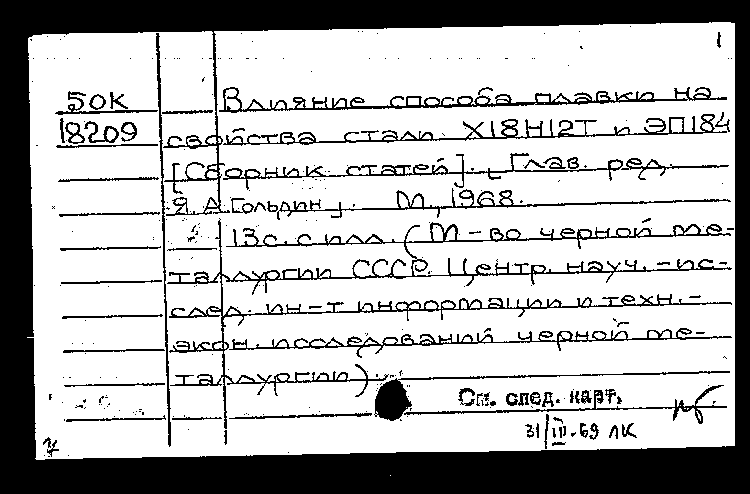 1
50К Влияние способа плавки на
18209 свойства стали Х18Н12Т и ЭП184
[Сборник статей]. [Глав. ред.
Я. А. Гольдин]. М., 1968.
13с. с илл. (М-во черной ме-
таллургии СССР. Центр. науч.-ис-
след. ин-т информации и техн.-
экон. исследований черной ме-
таллургии).
См. след. карт.
31/III-69 ЛК